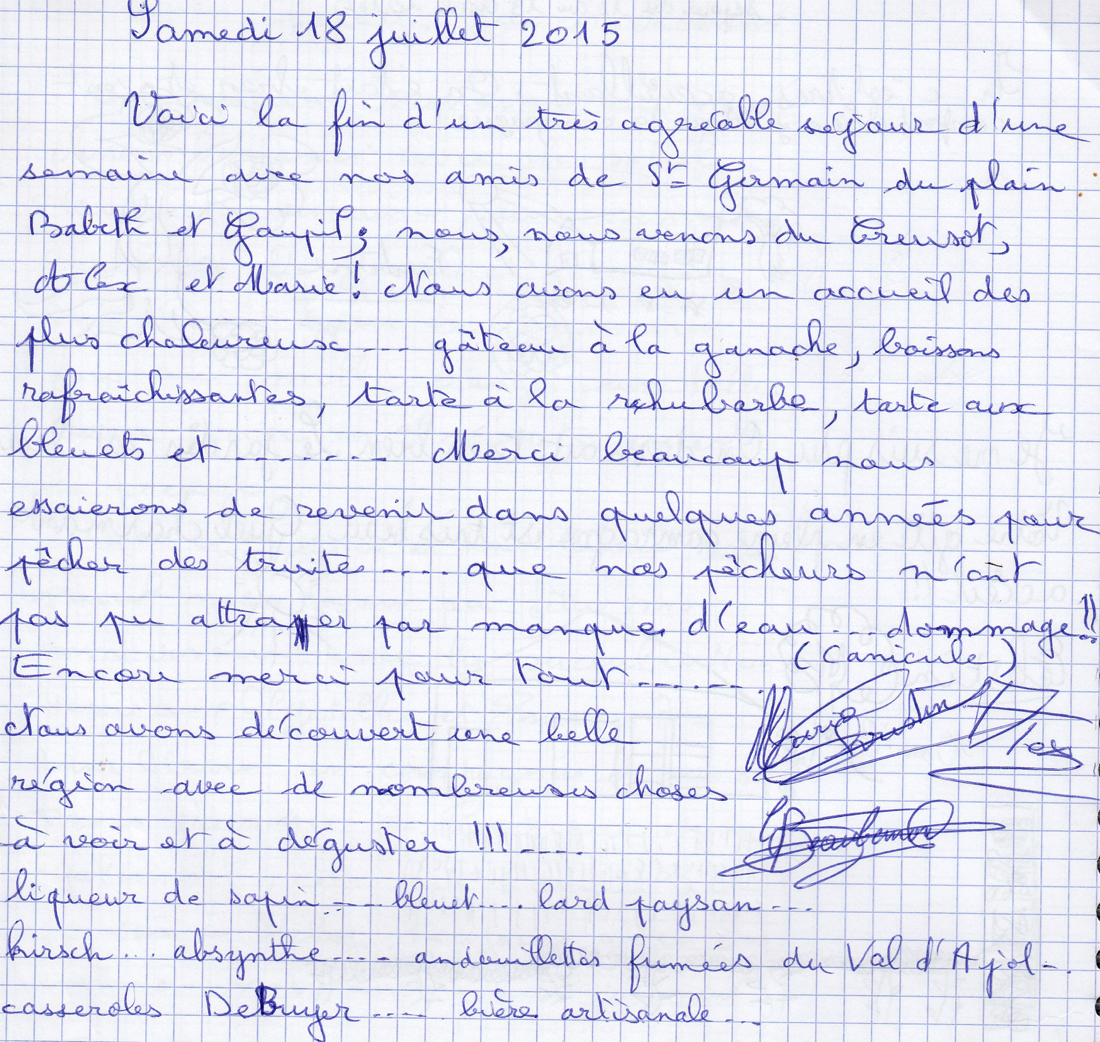 Samedi 18 juillet 2015
Voici la fin d'un très agréable séjour d'une
semaine avec nos amis de St Germain du plain
Babeth et Goupil; nous, nous venons du Creusot,
Alex et Marie! Nous avons eu un accueil des
plus chaleureuse .... gâteau à la ganache, boissons
rafraîchissantes, tarte à la rhubarbe, tarte aux
bleuets et ........ Merci beaucoup nous
essaierons de revenir dans quelques années pour
pêcher des truites .... que nos pêcheurs n'ont
pas pu attraper par manque d'eau ... dommage!!
(Canicule)
Encore merci pour tout ......
Nous avons découvert une belle
région avec de nombreuses choses
à voir et à déguster !!! ....
liqueur de sapin ... bleuet ... lard paysan ...
kirsch ... absynthe .... andouillettes fumées du Val d'Ajol ..
casseroles DeBuyer .... bière artisanale ...
Marie
Alex